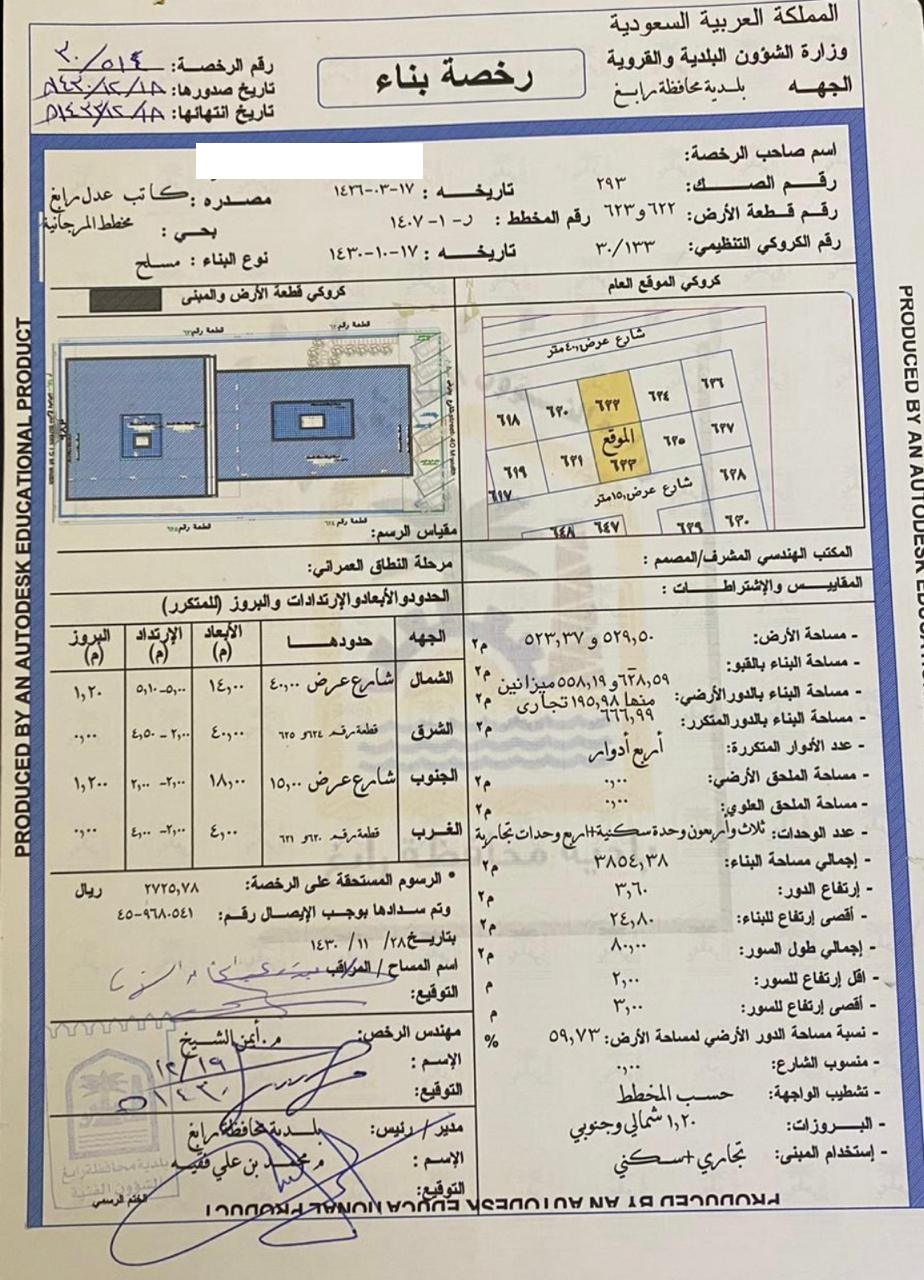 المملكة العربية السعودية
وزارة الشؤون البلدية والقروية
الجهـه بلدية محافظة رابغ
رخصة بناء
رقم الرخصة: ٣٠/٥١٤
تاريخ صدورها: ١٤٣٠/١٢/١٨هـ
تاريخ انتهائها: ١٤٣٣/١٢/١٨هـ
اسم صاحب الرخصة:
رقـم الصـك: ٢٩٣ تاريخـه : ١٧-٠٣-١٤٢٦ مصدره : كاتب عدل رابغ
رقم قطعة الأرض: ٦٢٢ و٦٢٣ رقم المخطط : ر-١-١٤٠٧ بحي : مخطط المرجانية
رقم الكروكي التنظيمي: ٣٠/١٣٣ تاريخـه : ١٧-١٠-١٤٣٠ نوع البناء : مسلح
كروكي الموقع العام
كروكي قطعة الأرض والمبنى
شارع عرض ٤٠ متر
٦١٨ ٦٢٠ ٦٢٢ ٦٢٤ ٦٢٦
الموقع
٦١٩ ٦٢١ ٦٢٣ ٦٢٥ ٦٢٧
٦١٧ شارع عرض ١٥ متر ٦٢٨
٦٤٨ ٦٤٧ ٦٢٩ ٦٣٠
مقياس الرسم:
المكتب الهندسي المشرف/المصمم :
مرحلة النطاق العمراني:
المقاييس والإشتراطـات :
- مساحة الأرض: ٥٢٩,٥٠ و ٥٢٣,٣٧ م٢
- مساحة البناء بالقبو: - م٢
- مساحة البناء بالدور الأرضي: ٦٢٨,٥٩ و ٥٥٨,١٩ ميزانين منها ١٩٥,٩٨ تجارى م٢
- مساحة البناء بالدور المتكرر: ٦٦٦,٩٩ م٢
- عدد الأدوار المتكررة: أربع أدوار
- مساحة الملحق الأرضي: ٠,٠٠ م٢
- مساحة الملحق العلوي: ٠,٠٠ م٢
- عدد الوحدات: ثلاث وأربعون وحدة سكنية+اربع وحدات تجارية
- إجمالي مساحة البناء: ٣٨٥٤,٣٨ م٢
- إرتفاع الدور: ٣,٦٠
- أقصى إرتفاع للبناء: ٢٤,٨٠ م٢
- إجمالي طول السور: ٨٠,٠٠ م٢
- اقل إرتفاع للسور: ٢,٠٠ م
- أقصى إرتفاع للسور: ٣,٠٠ م
- نسبة مساحة الدور الأرضي لمساحة الأرض: ٥٩,٧٣ %
- منسوب الشارع: ٠,٠٠
- تشطيب الواجهة: حسب المخطط
- البروزات: ١,٢٠ شمالي وجنوبي
- إستخدام المبنى: تجاري +سكني
الحدود والأبعاد والإرتدادات والبروز (للمتكرر)
الجهه حدودهـا الأبعاد (م) الإرتداد (م) البروز (م)
الشمال شارع عرض ٤٠,٠٠ ١٤,٠٠ ٥,٠٠-٥,١٠ ١,٢٠
الشرق قطعة رقم ٦٢٤ و ٦٢٥ ٤٠,٠٠ ٢,٠٠-٤,٥٠ ٠,٠٠
الجنوب شارع عرض ١٥,٠٠ ١٨,٠٠ ٢,٠٠-٢,٠٠ ١,٢٠٠
الغرب قطعة رقم ٦٢٠ و ٦٢١ ٤,٠٠ ٢,٠٠-٤,٠٠ ٠,٠٠
* الرسوم المستحقة على الرخصة: ٢٧٢٥,٧٨ ريال
وتم سدادها بوجب الإيصال رقم: ٩٦٨٠٥٤١-٤٥
بتاريخ ٢٨/ ١١/ ١٤٣٠
اسم المساح / المراقب
التوقيع:
مهندس الرخص: م.أيمن الشيخ
الإسم : ١٢/١٩
التوقيع: ١٤٣٠هـ
مدير / رئيس: بلدية محافظة رابغ
الإسم : م محمد بن علي فقيه
التوقيع:
الختم الرسمي
بلدية محافظة رابغ
الشؤون الفنية
PRODUCED BY AN AUTODESK EDUCATIONAL PRODUCT
PRODUCED BY AN AUTODESK EDUCATIONAL PRODUCT
PRODUCED BY AN AUTODESK EDUCAT